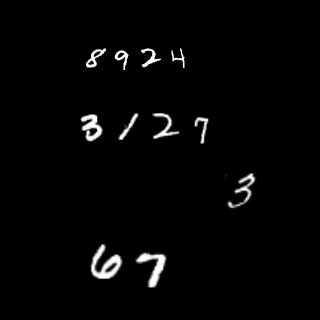 8924
3127
3
67